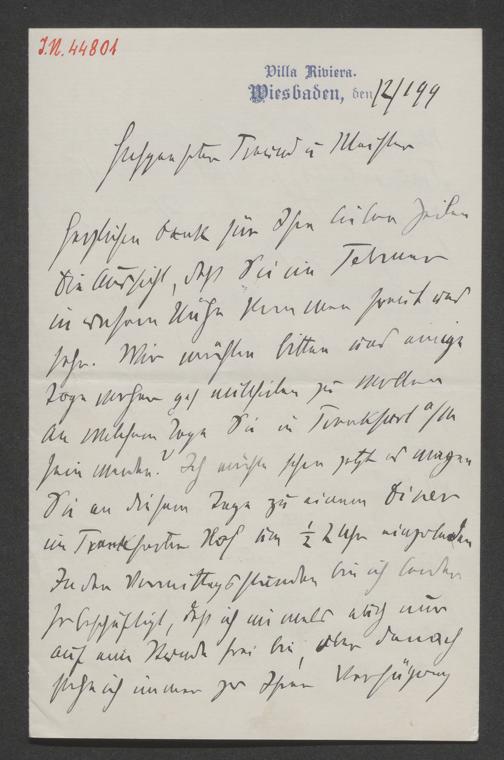 I.N. 44801
Villa Riviera.
Wiesbaden, den 12/1 99
Hochgeehrter Freund u Meister
Herzlichen Dank für Ihre lieben Zeilen
Die Aussicht, daß Sie im Februar
in unsere Nähe kommen freut uns
sehr. Wir möchten bitten uns einige
Tage vorher gef mittheilen zu wollen
an welchem Tage Sie in Frankfurt a/M
sein werden. Ich möchte schon jetzt es wagen
Sie an diesem Tage zu einem Diner
im Frankfurter Hof um ½ 2 Uhr einzuladen
In den Vormittagsstunden bin ich leider
so beschäftigt, daß ich niemals auch nur
auf eine Stunde frei bin, aber danach
stehe ich immer zu Ihrer Verfügung